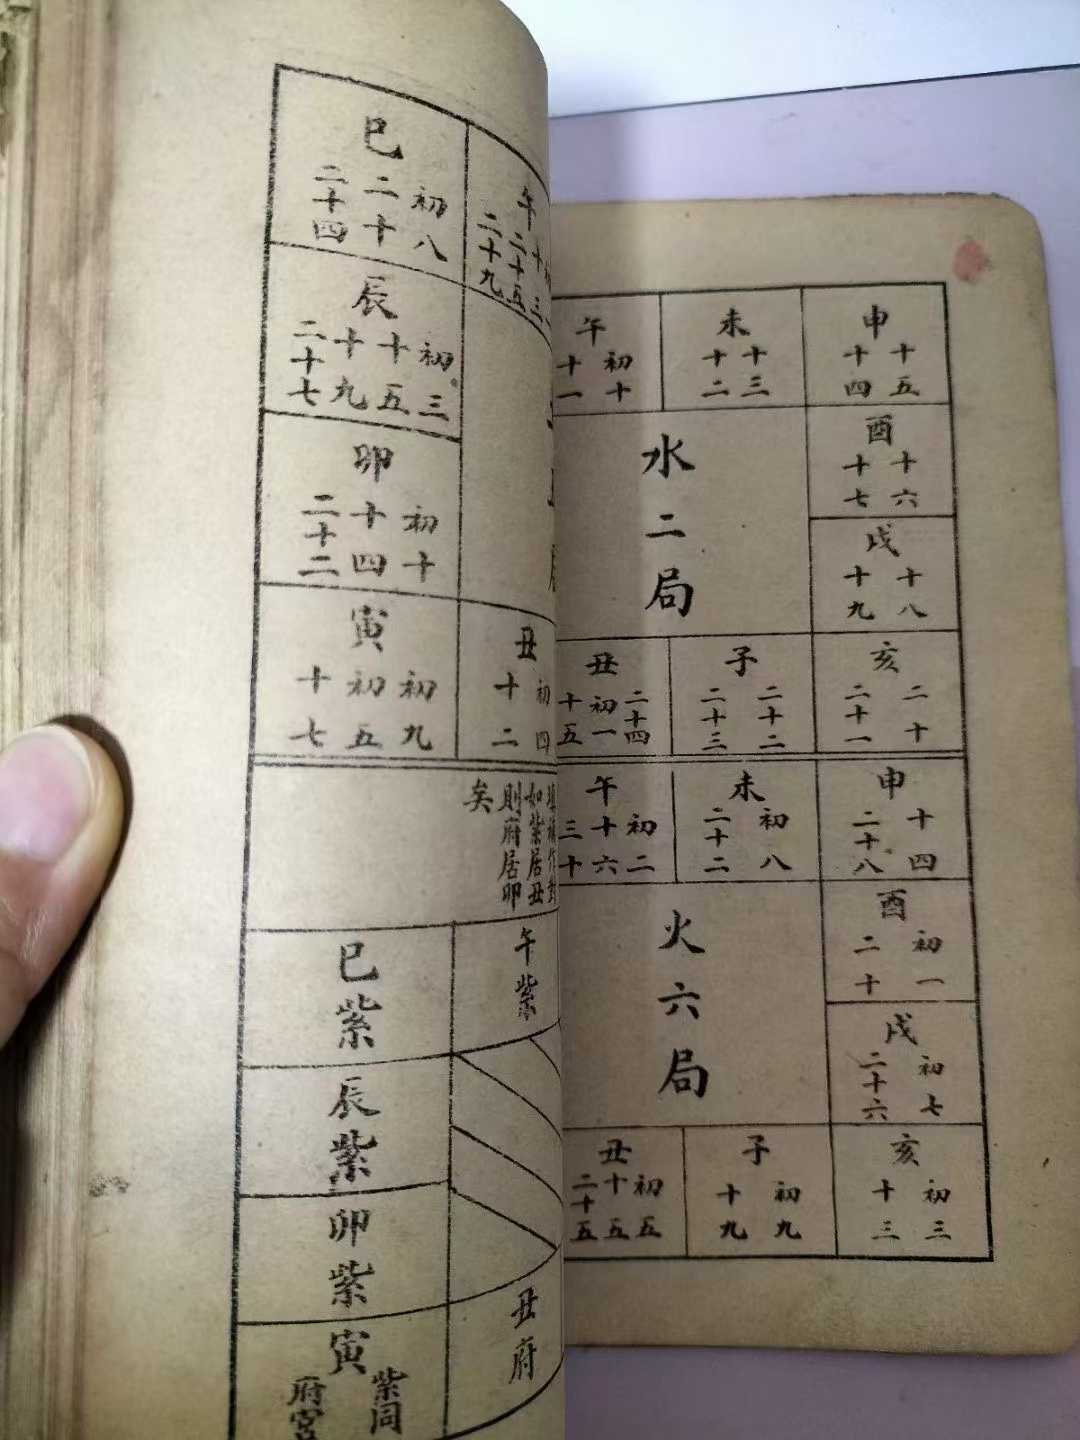 申
十五
十四
未
十三
十二
午
初十
十一
酉
十六
十七
戌
十八
十九
亥
二十
二十一
子
二十二
二十三
丑
二十四
初一
十五
水二局
申
十四
二十八
未
初八
二十二
午
初二
十六
三十
酉
初一
二十
戌
初七
二十六
亥
初三
十三
子
初九
十九
丑
初五
十五
二十五
火六局
午
十三
二十五
二十九
巳
初八
二十
二十四
辰
初三
十五
十九
二十七
卯
初十
十四
二十二
寅
初九
初五
十七
丑
初四
十二
局
如紫居丑
則府居卯
矣
午紫
巳紫
辰紫
卯紫
寅
紫同
府宮
丑府